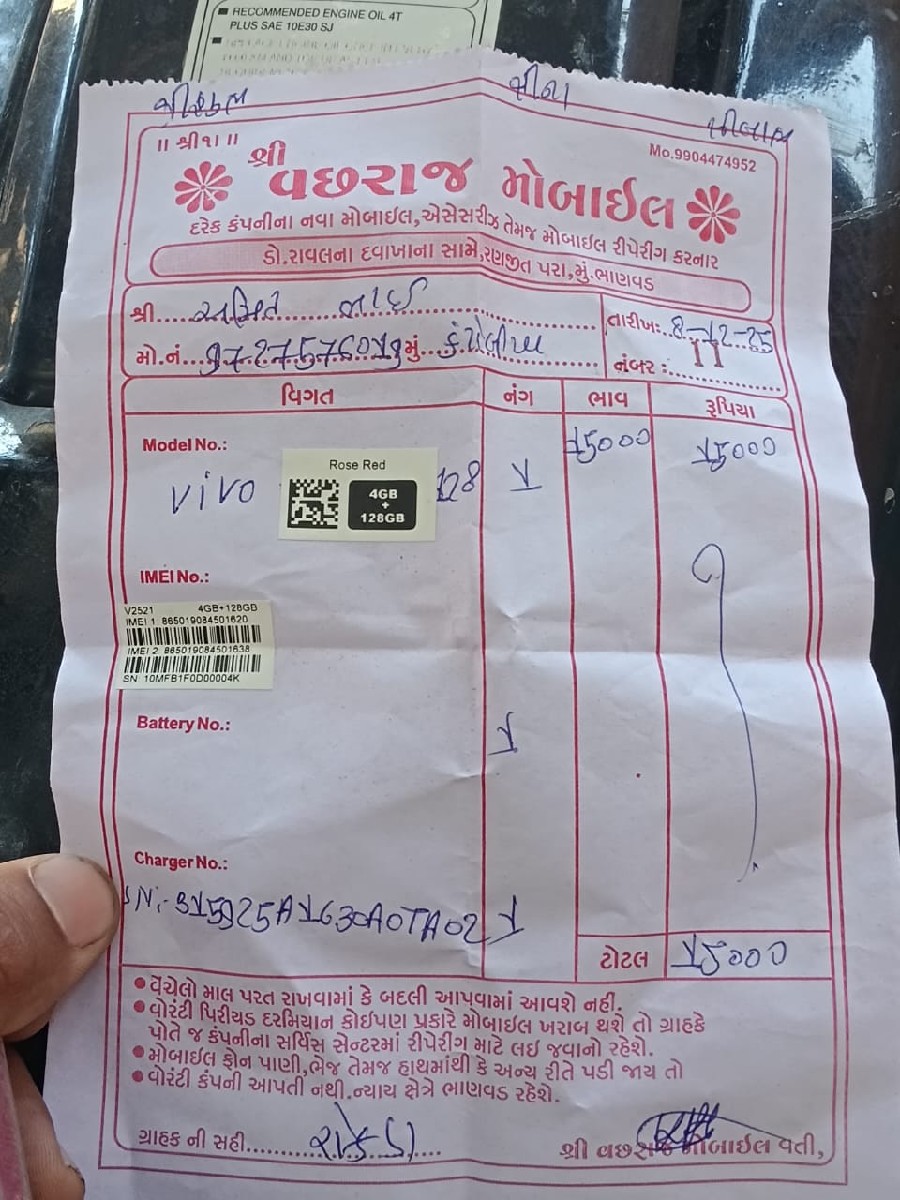 RECOMMENDED ENGINE OIL 4T
PLUS SAE 10E30 SJ
॥ શ્રી૧। ॥
Mo.9904474952
શ્રી વછરાજ મોબાઈલ
દરેક કંપનીના નવા મોબાઈલ,એસેસરીઝ તેમજ મોબાઈલ રીપેરીંગ કરનાર
ડો.રાવલના દવાખાના સામે,રણજીત પરા,મું.ભાણવડ
શ્રી..... ભાઈ
તારીખ:.. 8-12-25
મો.નં. મું.
નંબર :
વિગત નંગ ભાવ રૂપિયા
Model No.:
15000 15000
vivo
Rose Red
4GB
+
128GB
128 1
IMEI No.:
V2521 4GB+128GB
IMEI 1 865019084501620
IMEI 2 865019084501638
SN 10MFB1F0D00004K
Battery No.:
1
Charger No.:
1
ટોટલ 15000
• વેંચેલો માલ પરત રાખવામાં કે બદલી આપવામાં આવશે નહી.
• વોરંટી પિરીયડ દરમિયાન કોઈપણ પ્રકારે મોબાઈલ ખરાબ થશે તો ગ્રાહકે
પોતે જ કંપનીના સર્વિસ સેન્ટરમાં રીપેરીંગ માટે લઈ જવાનો રહેશે.
• મોબાઈલ ફોન પાણી,ભેજ તેમજ હાથમાંથી કે અન્ય રીતે પડી જાય તો
• વોરંટી કંપની આપતી નથી.ન્યાય ક્ષેત્રે ભાણવડ રહેશે.
ગ્રાહક ની સહી
શ્રી વછરાજ મોબાઈલ વતી,